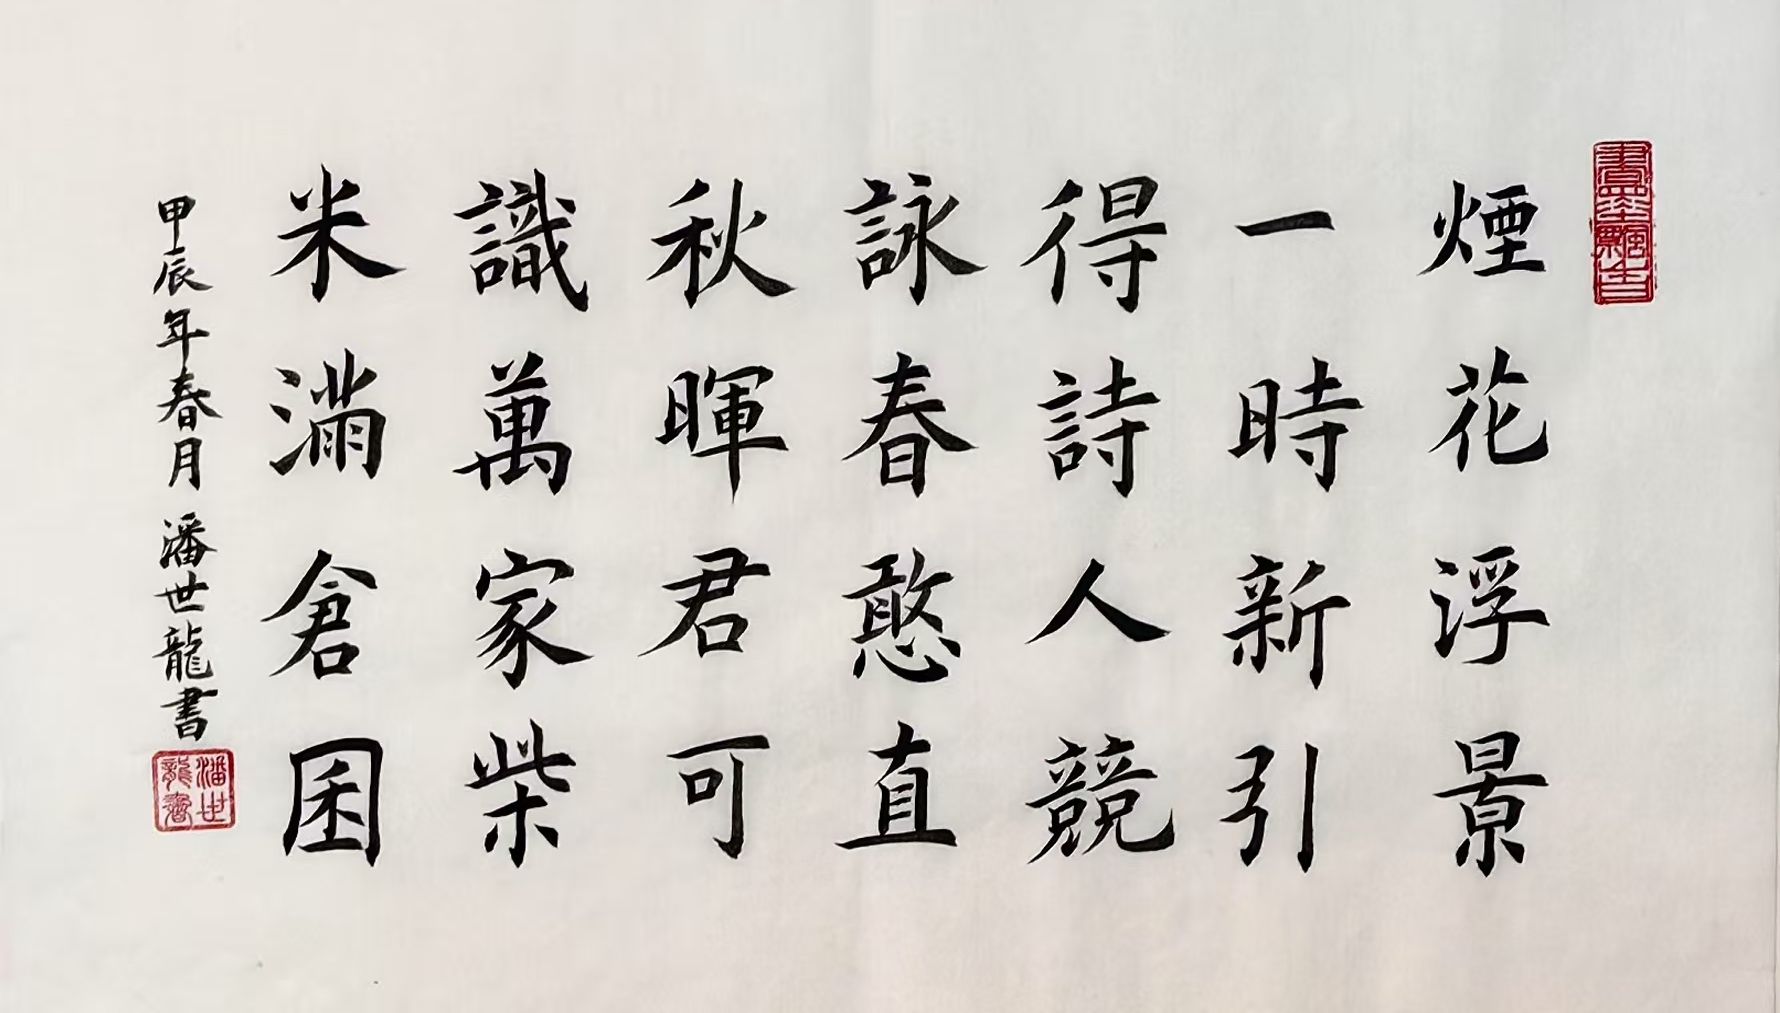 書墨飄香
煙花浮景
一時新引
得詩人競
詠春憨直
秋暉君可
識萬家柴
米滿倉囷
甲辰年春月潘世龍書
潘世龍齋